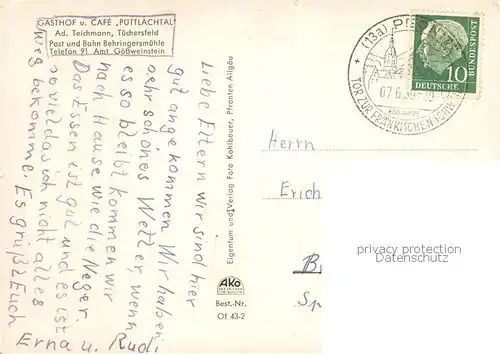 GASTHOF u. CAFÉ „PÜTTLACHTAL"
Ad. Teichmann, Tüchersfeld
Post und Bahn Behringersmühle
Telefon 91 Amt Gößweinstein
Liebe Eltern wir sind hier
gut angekommen Wir haben
sehr schönes Wetter, wenn
es so bleibt kommen wir
nach Hause wie die Neger.
Das Essen ist gut und es ist
so viel das ich nicht alles
weg bekomme. Es grüßt Euch
Erna u. Rudi
Eigentum und Verlag Foto Kohlbauer, Pfronten Allgäu
AKO
Best.-Nr.
Of 43-2
(13a)
TOR ZUR FRÄNKISCHEN
DEUTSCHE
BUNDESPOST
10
Herrn
Erich
B
Sp
privacy protection
Datenschutz